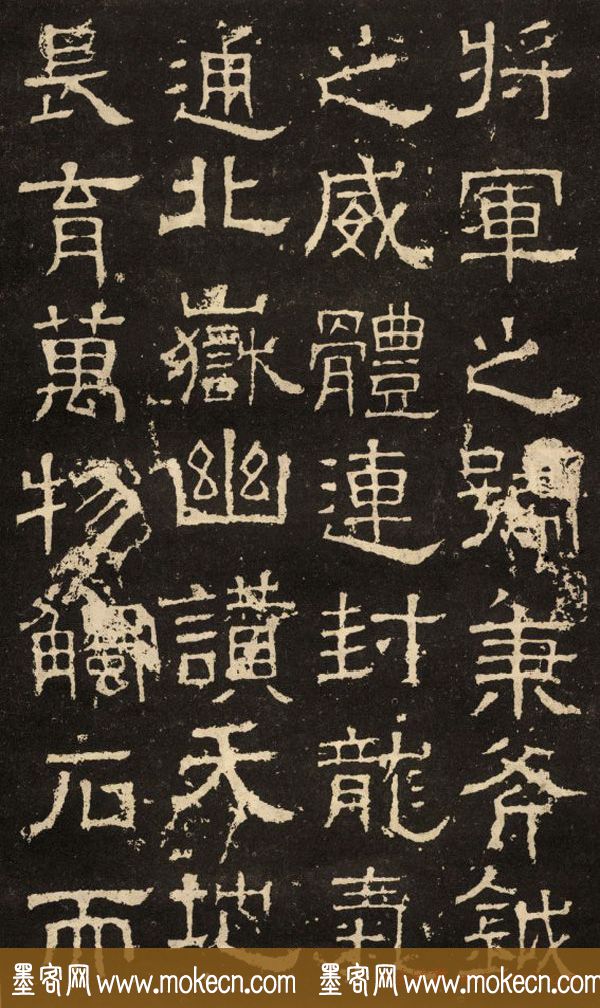 將軍之號秉斧鉞
之威體連封龍氣
通北嶽幽讚天地
長育萬物觸石而
墨客网 www.mokecn.com 墨客网 www.mokecn.com